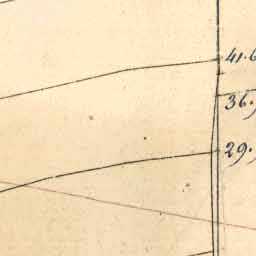 41.6
36.
29.